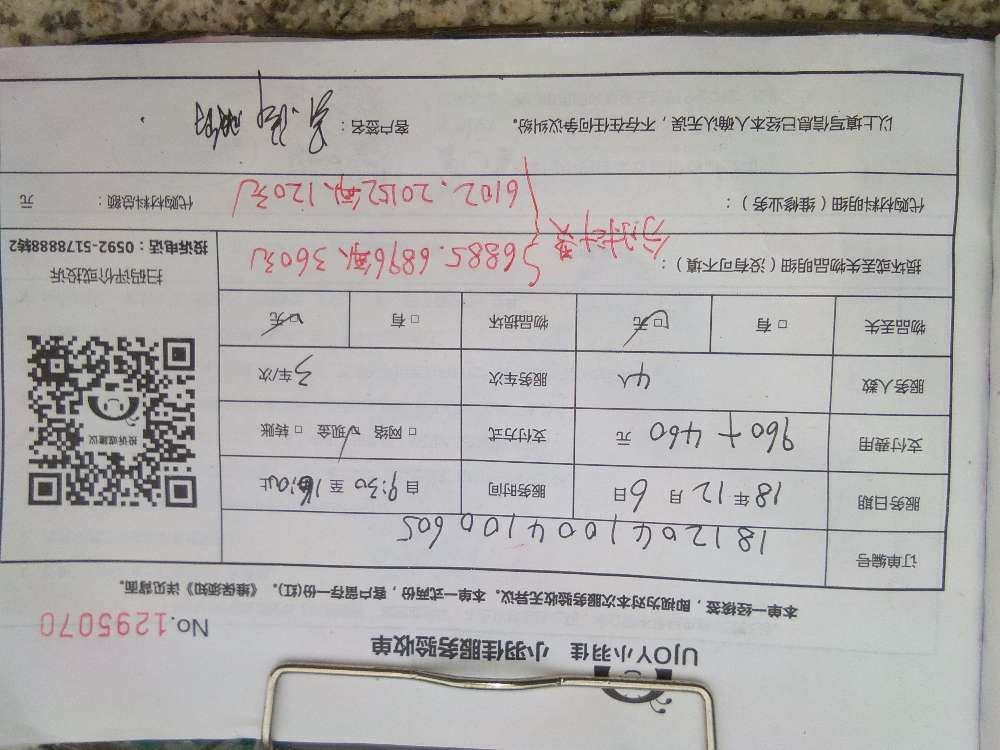 UJOY小羽佳 小羽佳服务验收单
No.1295070
本单一经核签，即视为对本次服务验收无异议。本单一式两份，客户留存一份(红)。《维保须知》详见背面。
订单编号 1812041004100605
服务日期 18年12月6日 服务时间 自9:30至16:00止
支付费用 960+460 元 支付方式 □ 网络 ☑ 现金 □ 转账
服务人数 4人 服务车次 3车/次
物品丢失 □ 有 ☑ 无 物品损坏 □ 有 ☑ 无
投诉或建议
扫码评价或投诉
投诉电话：0592-5178888转2
损坏或丢失物品明细（没有可不填）： 56885.6896车 360元
代购材料明细（维修业务）： 6102.20152车 120元
代购材料总额： 元
以上填写信息已经本人确认无误，不存在任何争议纠纷。 客户签名：